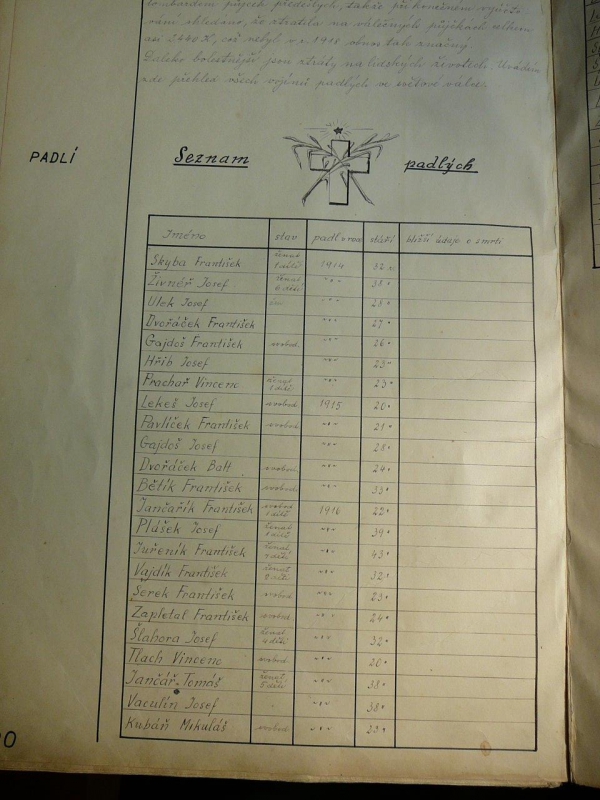 lombardem půjček předešlých, takže při konečném vyúčto-
vání shledáno, že ztratila na válečných půjčkách celkem
asi 5440 K, což nebyl v r. 1918 obnos tak značný.
Daleko bolestnější jsou ztráty na lidských životech. Uvádím
zde přehled všech vojínů padlých ve světové válce.
PADLÍ
Seznam padlých
Jméno stav padl v roce stáří bližší údaje o smrti
Skyba František ženat dětí 1914 32 r.
Živnéř Josef ženat dětí -"- 38 "
Ulek Josef -"- 28 "
Dvořáček František -"- 27 "
Gajdoš František svobod. -"- 26 "
Hřib Josef -"- 23 "
Prachař Vincenc ženat 1 dítě -"- 23 "
Lekeš Josef svobod. 1915 20 "
Pavlíček František svobod. -"- 21 "
Gajdoš Josef -"- 28 "
Dvořáček Balt svobod. -"- 24 "
Bětík František svobod. -"- 33 "
Jančařík František svobod. 1 dítě 1916 22 "
Plášek Josef ženat 1 dítě -"- 39 "
Juřeník František ženat dětí -"- 43 "
Vajdík František ženat 2 děti -"- 32 "
Šerek František svobod. -"- 23 "
Zapletal František svobod. -"- 24 "
Šlahora Josef ženat 4 děti -"- 32 "
Tlach Vincenc svobod. -"- 20 "
Jančář Tomáš ženat 5 dětí -"- 38 "
Vaculín Josef -"- 38 "
Kubáň Mikuláš svobod. -"- 23 "